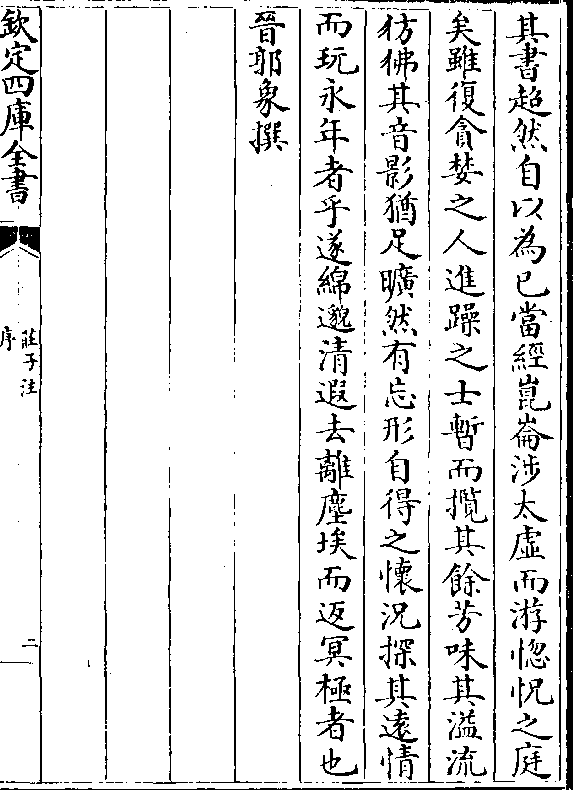 其書超然自以為已當經崑崙涉太虛而游惚怳之庭
矣雖復貪婪之人進躁之士暫而攬其餘芳味其溢流
彷彿其音影猶足曠然有忘形自得之懷況探其遠情
而玩永年者乎遂綿邈清遐去離塵埃而返冥極者也
晉郭象撰
欽定四庫全書
莊子注
序
二